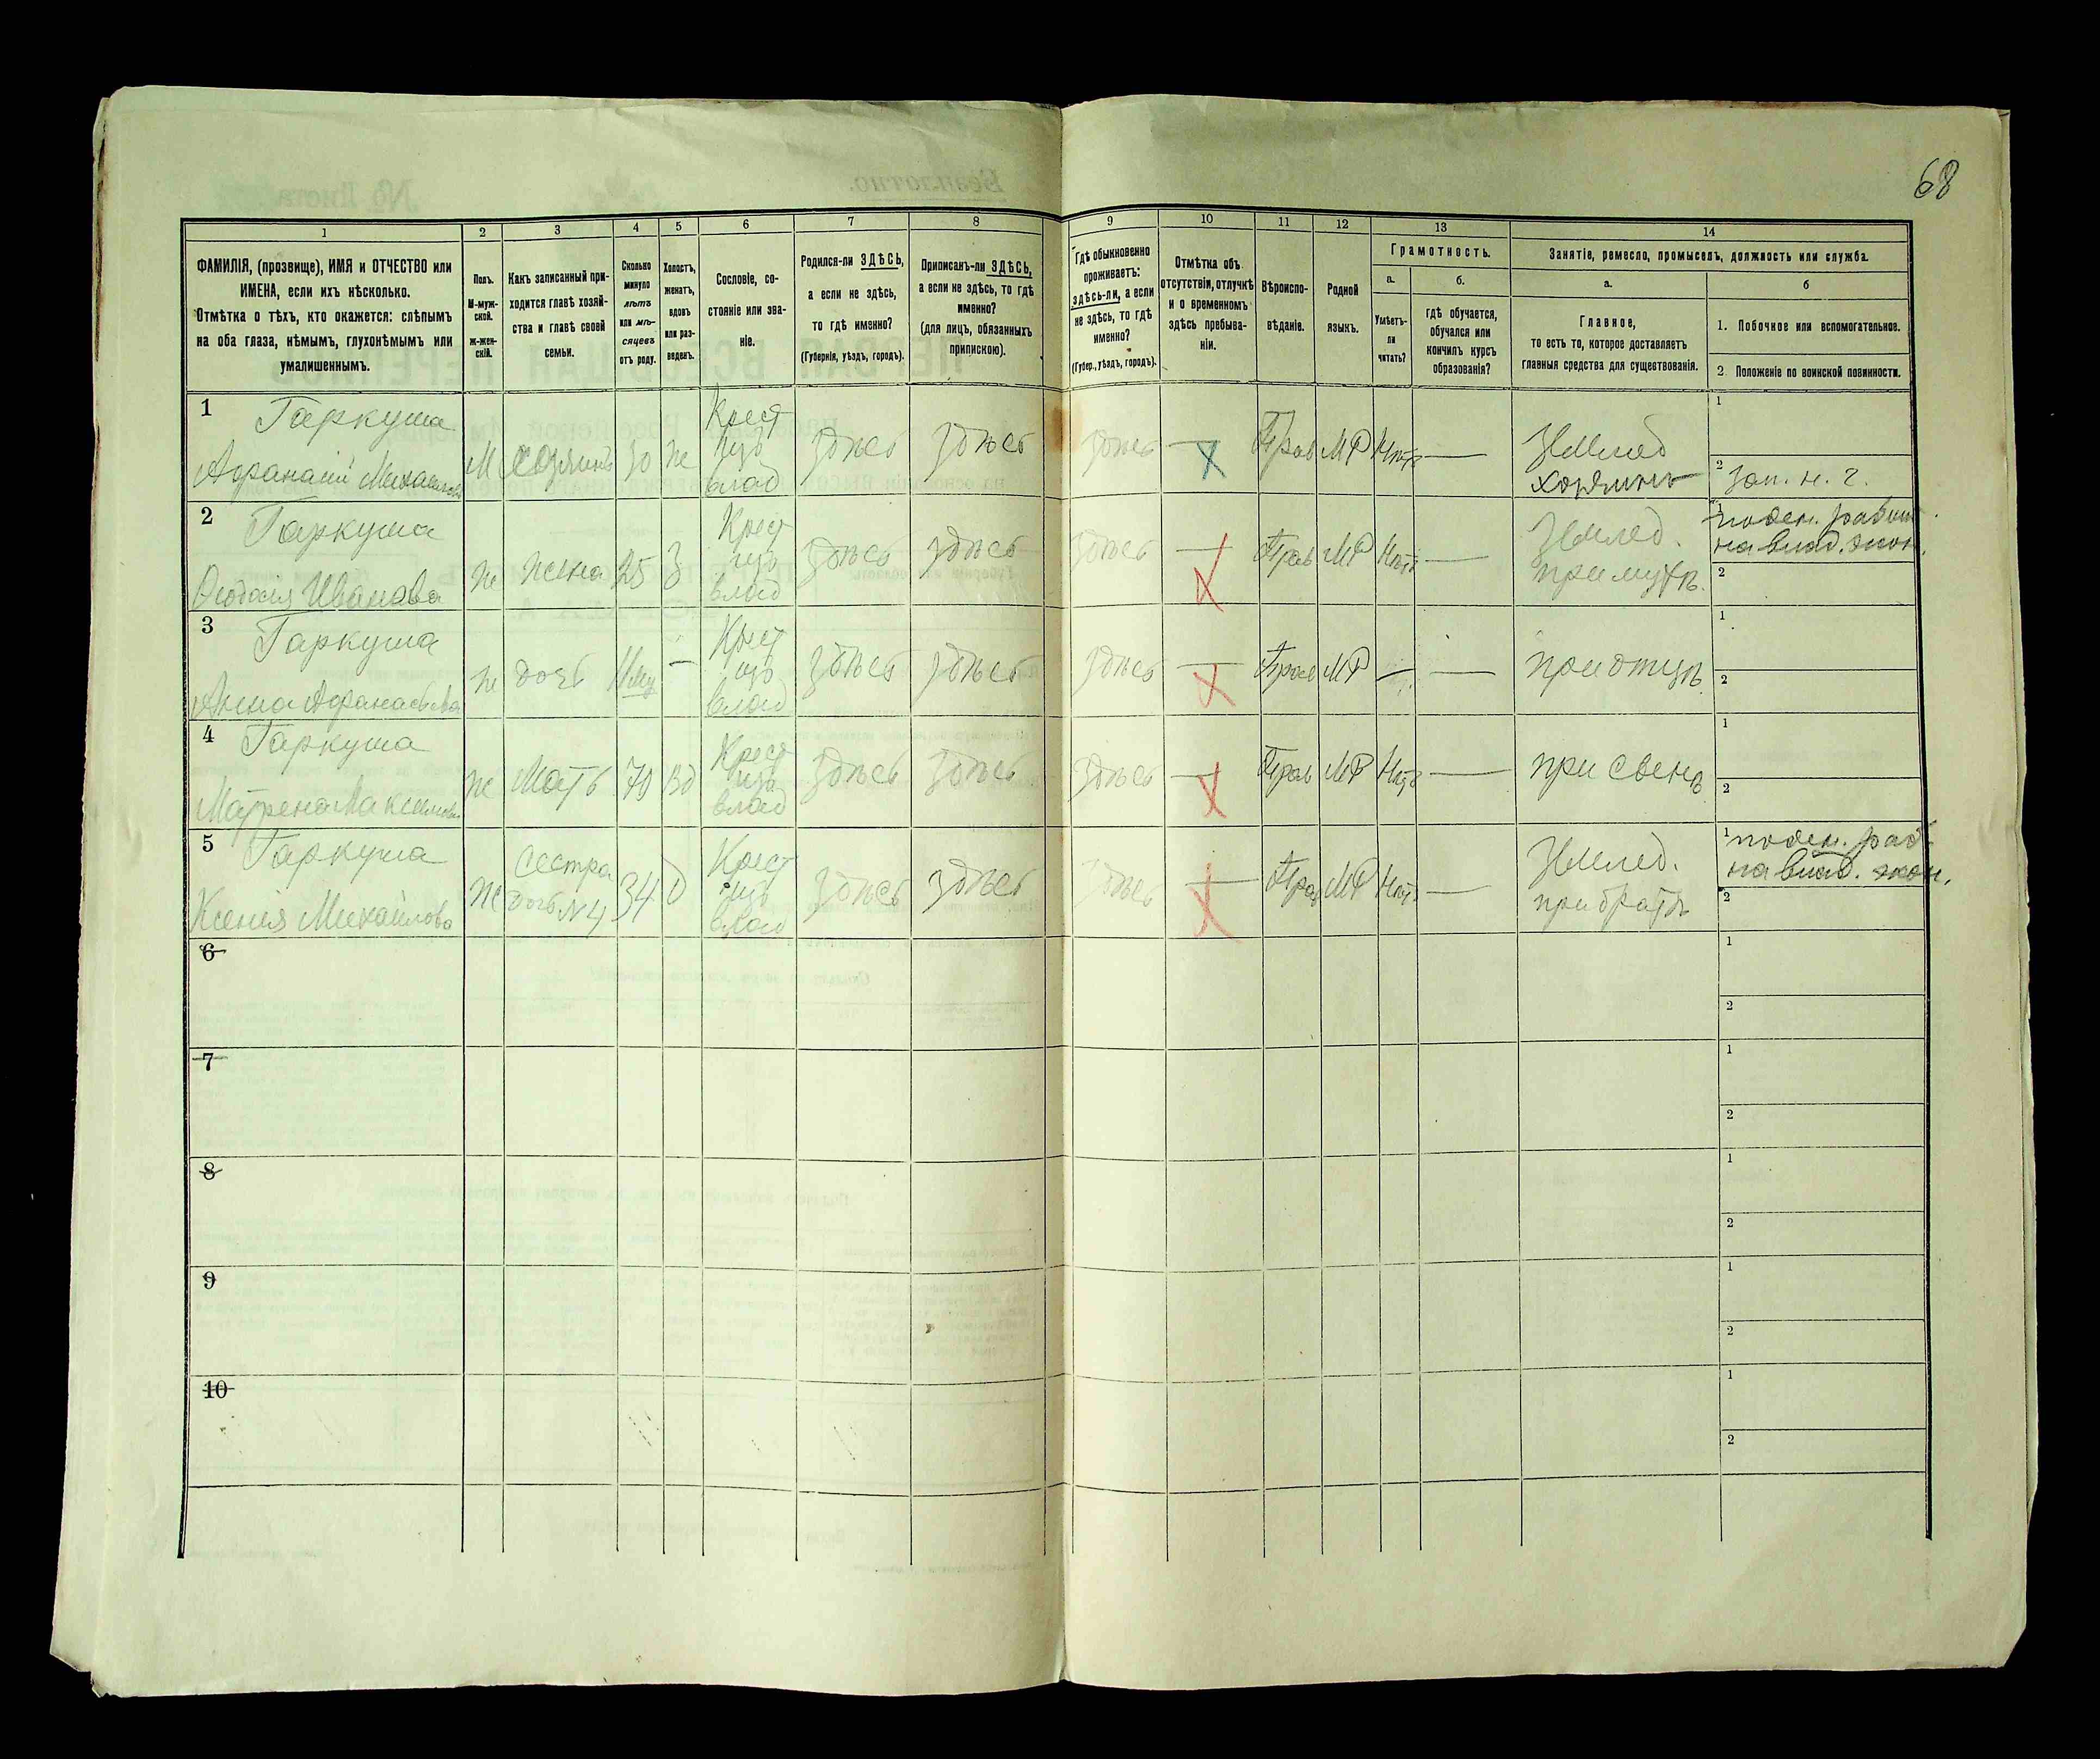 68
1 2 3 4 5 6 7 8 9 10 11 12 13 14
ФАМИЛІЯ, (прозвище), ИМЯ и ОТЧЕСТВО или
ИМЕНА, если ихъ нѣсколько.
Отмѣтка о тѣхъ, кто окажется: слѣпымъ
на оба глаза, нѣмымъ, глухонѣмымъ или
умалишеннымъ.
Полъ.
М-муж-
ской.
Ж-жен-
скій.
Какъ записанный при-
ходится главѣ хозяй-
ства и главѣ своей
семьи.
Сколько
минуло
лѣтъ
или мѣ-
сяцевъ
отъ роду.
Холостъ,
женатъ,
вдовъ
или раз-
веденъ.
Сословіе, со-
стояніе или зва-
ніе.
Родился-ли ЗДѢСЬ,
а если не здѣсь,
то гдѣ именно?
(Губернія, уѣздъ, городъ).
Приписанъ-ли ЗДѢСЬ,
а если не здѣсь, то гдѣ
именно?
(для лицъ, обязанныхъ
припискою).
Гдѣ обыкновенно
проживаетъ:
здѣсь-ли, а если
не здѣсь, то гдѣ
именно?
(Губер., уѣздъ, городъ).
Отмѣтка объ
отсутствіи, отлучкѣ
и о временномъ
здѣсь пребыва-
ніи.
Вѣроиспо-
вѣданіе.
Родной
языкъ.
Грамотность.
а.
Умѣетъ-
ли
читать?
б.
гдѣ обучается,
обучался или
кончилъ курсъ
образованія?
Занятіе, ремесло, промыселъ, должность или служба.
а.
Главное,
то есть то, которое доставляетъ
главныя средства для существованія.
б
1. Побочное или вспомогательное.
2. Положеніе по воинской повинности.
1 Гаркуша
Афанасій Михайловъ
М
хозяинъ
30
Ж
Крест
изъ
влад
здѣсь
здѣсь
здѣсь
—
Прав
МР
Нѣтъ
—
Землед
хозяинъ
1
2 Зап. н. ч.
2 Гаркуша
Феодосія Иванова
Ж
жена
25
З
Крест
изъ
влад
здѣсь
здѣсь
здѣсь
—
Прав
МР
Нѣтъ
—
Землед.
при мужѣ.
1 поден. работ.
на влад. экон.
2
3 Гаркуша
Анна Афанасьева
Ж
дочь
—
Крест
изъ
влад
здѣсь
здѣсь
здѣсь
—
Прав
МР
—
—
при отцѣ
1
2
4 Гаркуша
Матрена Максимова
Ж
Мать
70
Вд
Крест
изъ
влад
здѣсь
здѣсь
здѣсь
—
Прав
МР
Нѣтъ
—
при сынѣ
1
2
5 Гаркуша
Ксенія Михайлова
Ж
Сестра
дочь N 4
34
Д
Крест
изъ
влад
здѣсь
здѣсь
здѣсь
—
Прав
МР
Нѣтъ
—
Землед.
при братѣ
1 поден. раб.
на влад. экон.
2
6
1
2
7
1
2
8
1
2
9
1
2
10
1
2